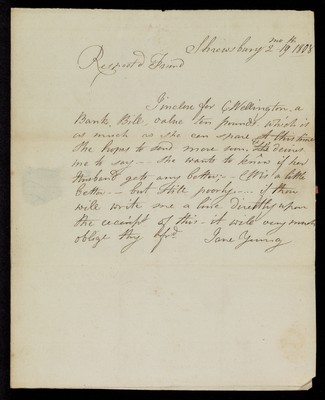 Shrewsbury 2 mo 19 1808
Respectd Friend
I inclose for C Wellington, a
Bank Bill value ten pounds which is
as much as she can spare at this time
She hopes to send more soon. She desires
me to say -- she wants to know if her
Husband gets any better; -- is a little
better -- but still poorly -- if thou
will write me a line directly upon
the receipt of this - it will very much
oblige thy frd. Jane Young